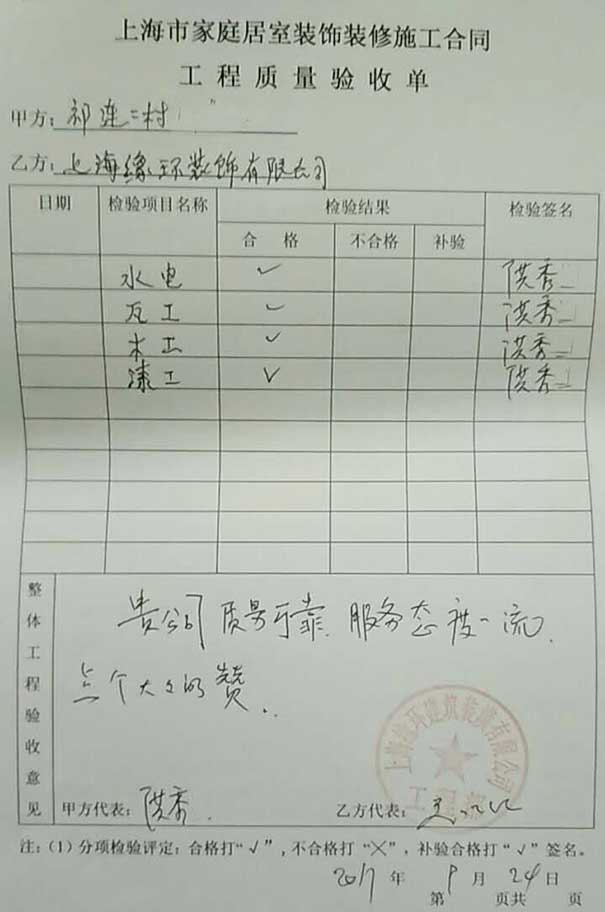 上海市家庭居室装饰装修施工合同
工程质量验收单
甲方：祁连二村
乙方：上海缘环装饰有限公司
日期 检验项目名称 检验结果 检验签名
合格 不合格 补验
水电 ✓ 洪秀
瓦工 ✓ 洪秀
木工 ✓ 洪秀
漆工 ✓ 洪秀
整体工程验收意见
贵公司质量可靠、服务态度一流、
点个大大的赞..
甲方代表：洪秀 乙方代表：
注：(1)分项检验评定：合格打“√”，不合格打“╳”，补验合格打“√”签名。
2017年9月24日
第 页共 页